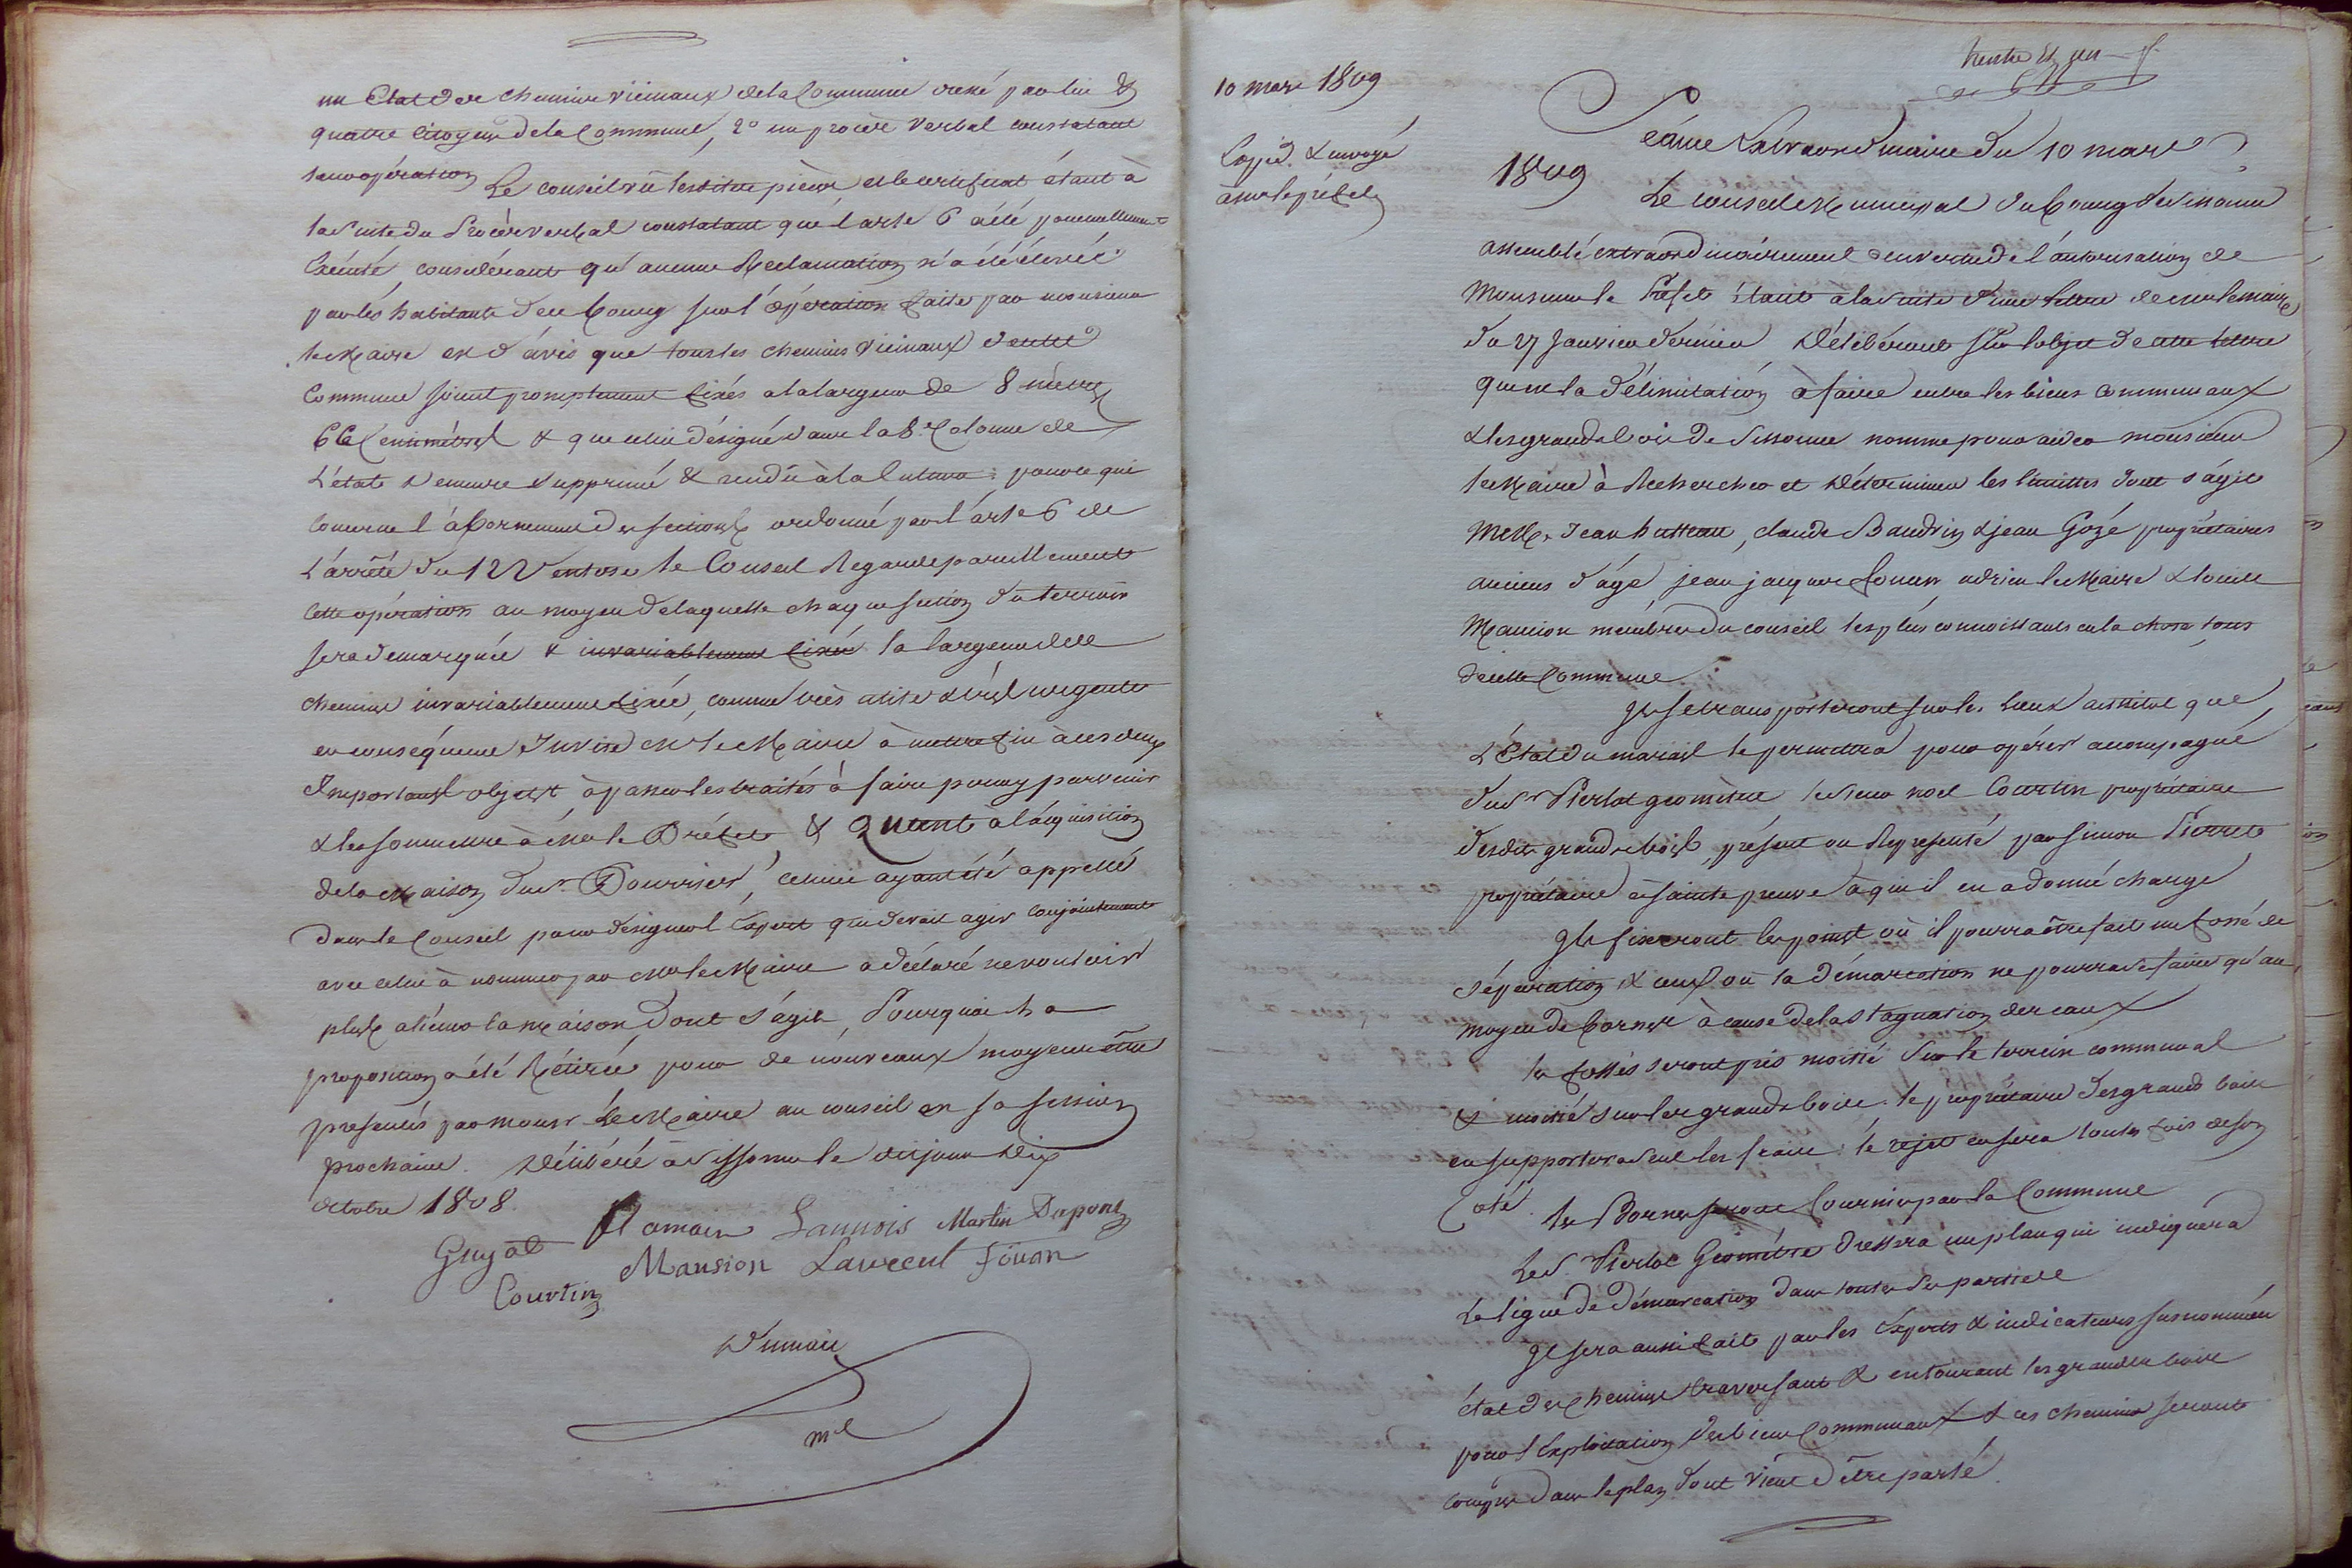 un Etat des chemins vicinaux de la Commune dressé par lui &
quatre Citoyens de la Commune, 2° un procès verbal constatant
son opération Le conseil vû lesdites pièces et le certificat étant à
la suite du Procès verbal constatant que l'arte 6 a été ponctuellement
Exécuté, considérant qu'aucune Reclamation n'a été élevée
par les habitants de ce bourg sur l'opération faite par monsieur
le Maire est d'avis que tous les chemins vicinaux de cette
Commune soient promptement fixés a la largeur de 8 mètres
66 Centimètres & que celui désigné dans la 8e Colonne de
L'état demeure supprimé & rendu à la Culture: pour ce qui
Concerne l'abornement des sections ordonné par l'arte 6 de
L'arrêté du 12 Ventose le Conseil Regarde pareillement
Cette opération au moyen de laquelle chaque section du terroir
sera demarquée & invariablement fixée la largeur des
chemins invariablement fixée, comme très utile & très urgente
en conséquence Invite Mr le Maire à mettre fin à ces deux
Importants objets, à passer les traités à faire pour y parvenir
& les soumettre à Mr le Préfet, & Quant à l'acquisition
de la Maison du Sr Pourrier, celui ci ayant été appellé
dans le Conseil pour désigner l'Expert qui devait agir conjointement
avec celui à nommer par Mr le Maire a déclaré ne vouloir
plus aliéner la maison dont s'agit, Pourquoi la
proposition a été Rétirée pour de nouveaux moyens être
presentés par monsr Le Maire au conseil en sa session
prochaine. Délibéré à Sissonne le dit jour dix
octobre 1808.
Guyot Hamain Lannois Martin Dupont
Courtin Mansion Laurent foüan
Dumair
ml
trente et un
10 mars 1809
Copié & envoyé
à mr le préfet
Séance Extraordinaire du 10 mars
1809
Le conseil Municipal du bourg de Sissonne
assemblé extraordinairement en vertu de l'autorisation de
Monsieur le Préfet étant à la suite d'une lettre de mr le maire
du 27 Janvier dernier Délibérant sur l'objet de cette lettre
qui est la délimitation à faire entre les biens Communaux
& les grands bois de Sissonne nomme pour aider monsieur
le Maire à Rechercher et Déterminer les limittes dont s'agit
MM. Jean hutteau, claude Baudrin & jean Gozé propriétaires
anciens d'âge, jean jacques fouan adrien le Maire & louis
Mancion membres du conseil les plus connoissants en la chose tous
de cette Commune
Ils se transporteront sur les Lieux aussitôt que
L'Etat du marais le permettra pour opérer accompagné
du Sr Pierlot géomètre le Sieur noel Courtin propriétaire
desdits grands bois, présent ou Représenté par Simon Pierret
propriétaire à sainte preuve à qui il en a donné charge
Ils fixeront les points où il pourra être fait un fossé de
séparation, & ceux où la démarcation ne pourra se faire qu'au
moyen de bornes à cause de la stagnation des eaux
les fossés seront pris moitié sur le terrein communal
& moitié sur les grands bois. le propriétaire des grands bois
en supportera seul les frais: le rejet en sera toutes fois de son
Coté. les Bornes seront fournies par la Commune
Le S. Pierlot Géomètre dressera un plan qui indiquera
La ligne de démarcation dans toutes ses parties
Il sera aussi fait par les Experts & indicateurs susnommés
état des chemins traversant & entourant les grands bois
pour l'Exploitation des biens Communaux & ces chemins seront
compris dans le plan dont vient d'être parlé.